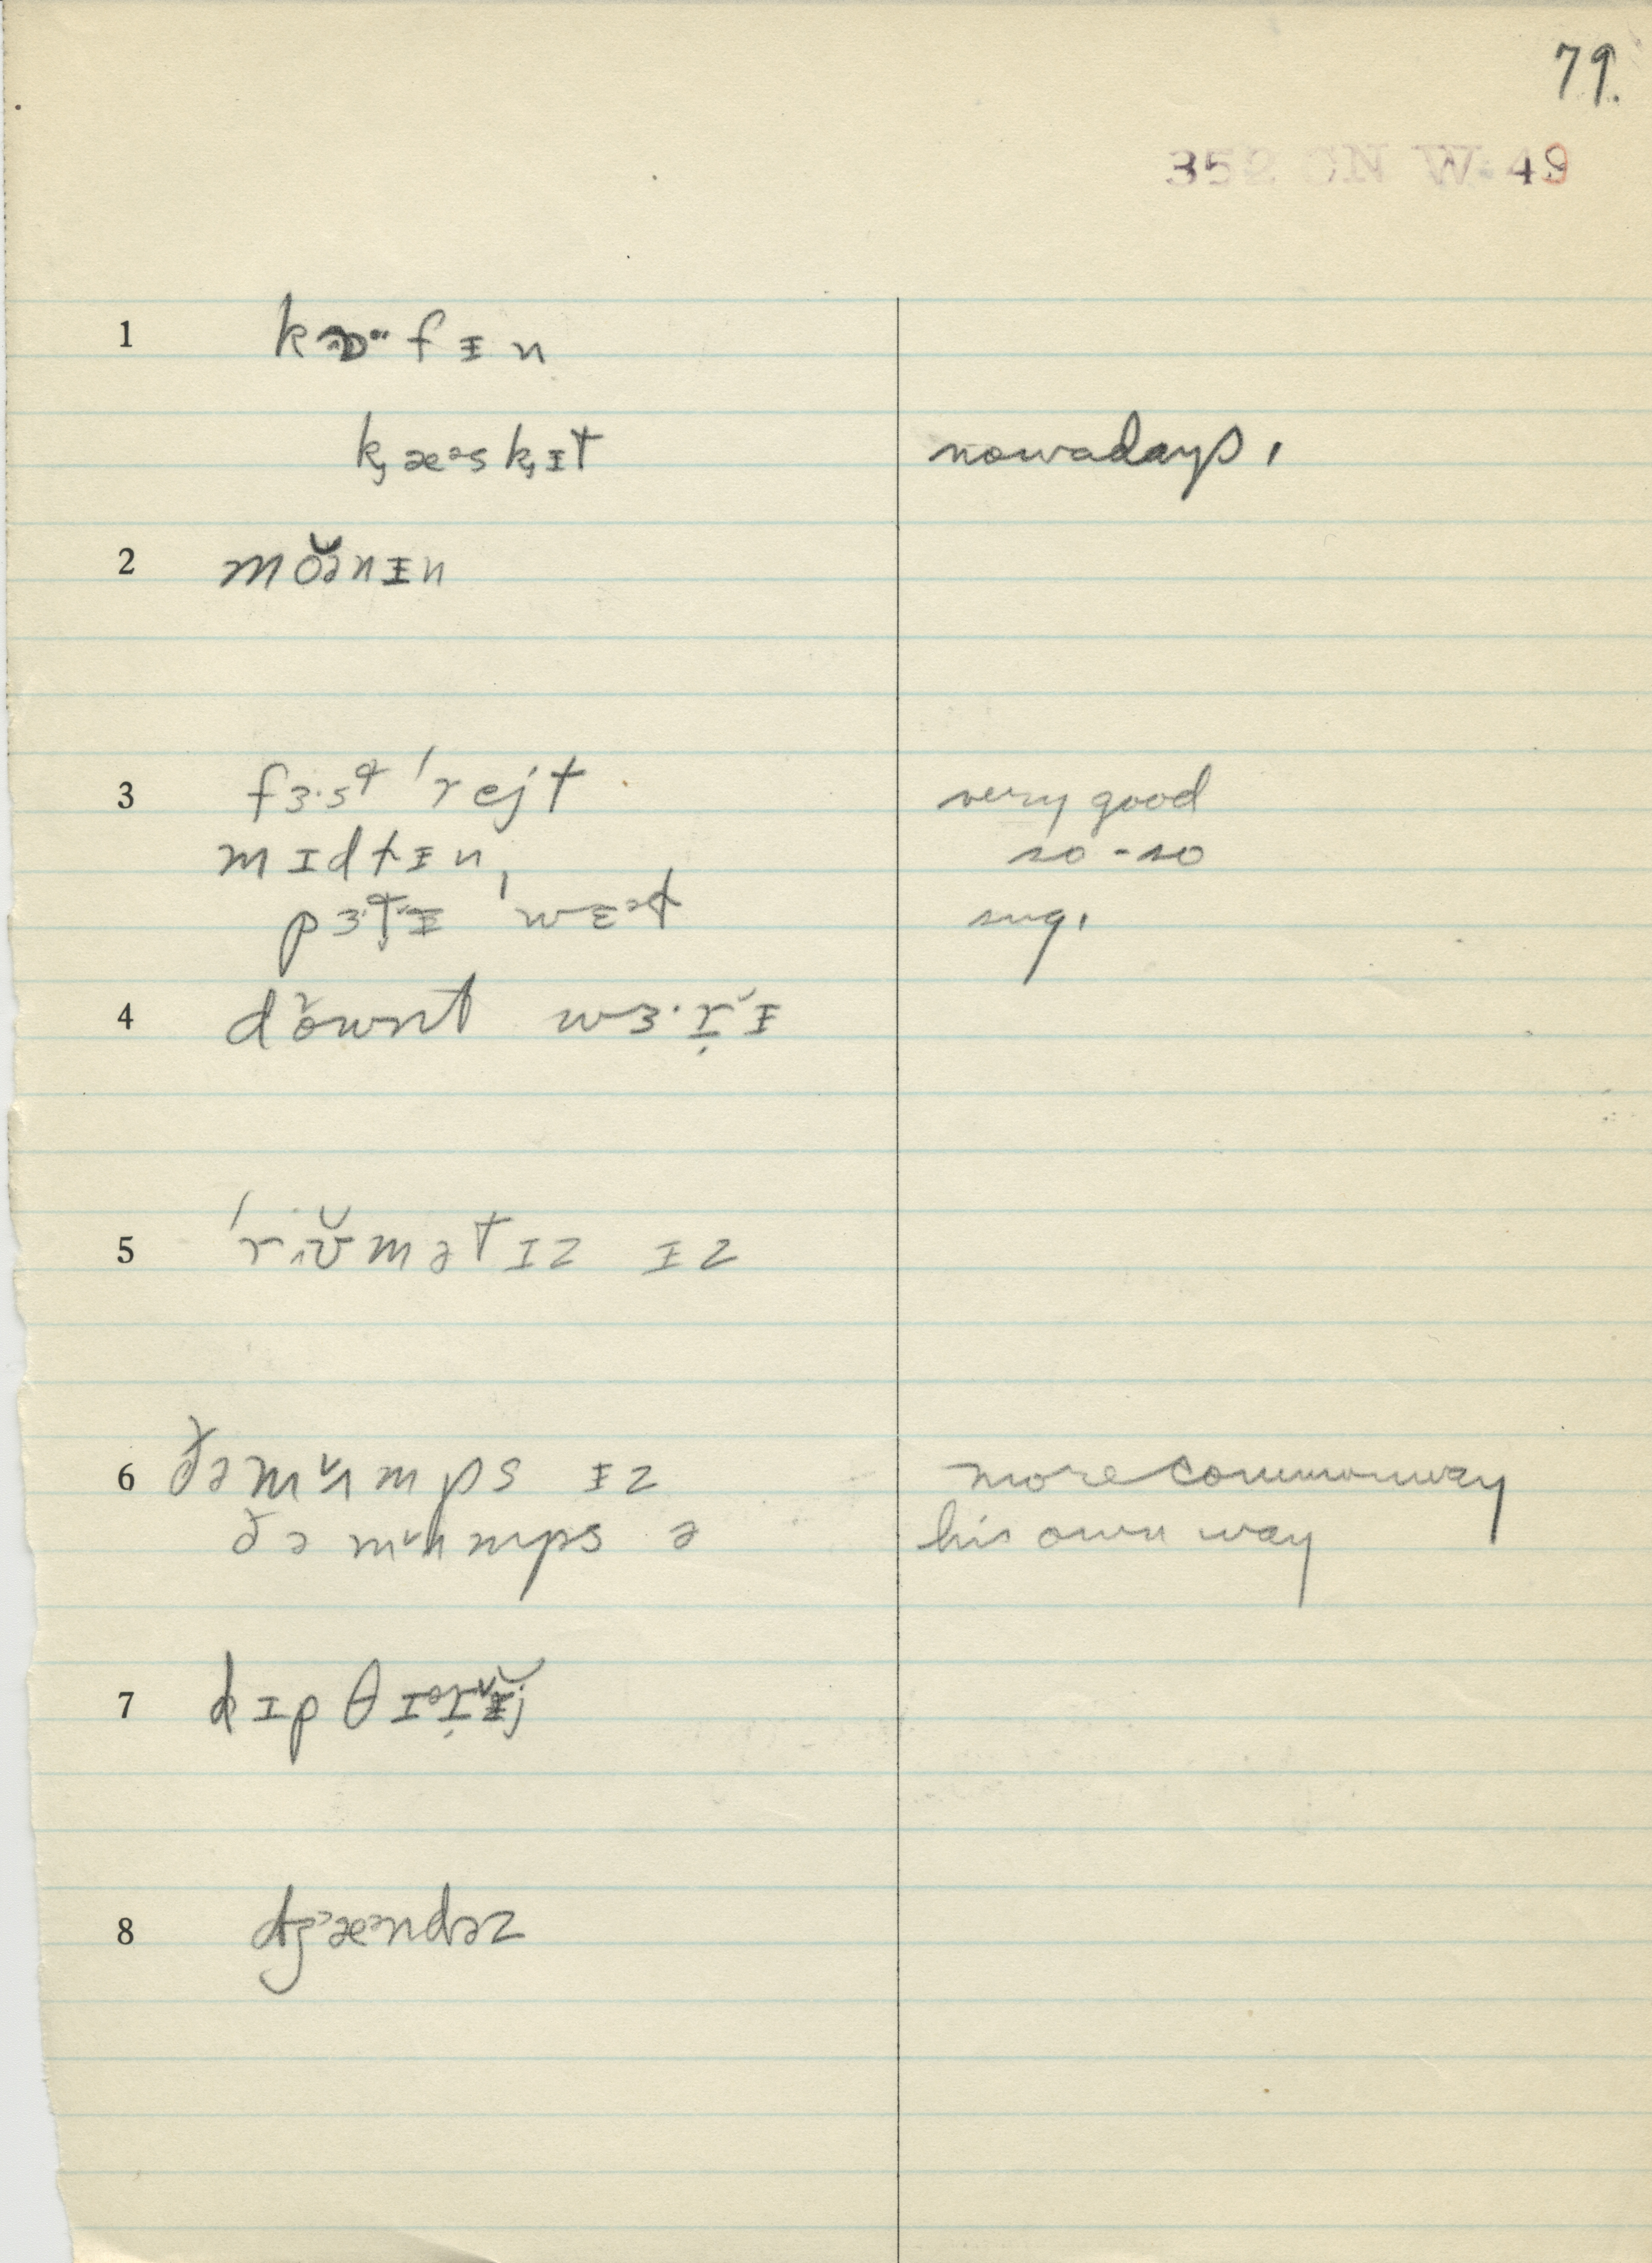 79.
49
1 kɒ·fɪn
k̡æᵊsk̡ɪt nowadays,
2 mŏənɨn
3 fɜ·st 'rejt very good
mɪdlɨn, so-so
'wɛəl sug,
4 dŏwnt wɜ·r̬ɨ
5 'riʊ̆mətɪz ɨz
6 ðə mʌmps ɨz more common way
ðə mʌmps ə his own way
7 dɪpθɪər̬ɨj
8 dʒæəndəz